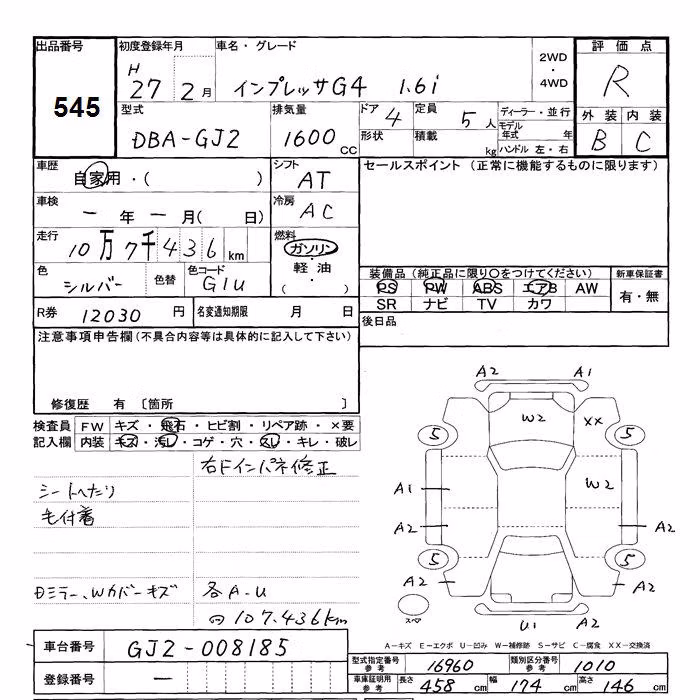 出品番号 初度登録年月 車名・グレード 2WD・4WD 評価点
545 H 27 2月 インプレッサG4 1.6i R
型式 排気量 ドア 4 定員 5人 ディーラー・並行 外装 内装
DBA-GJ2 1600cc 形状 積載 kg モデル年式 年 B C
ハンドル 左・右
車歴 シフト セールスポイント (正常に機能するものに限ります)
自家用・( ) AT
車検 冷房
一年一月( 日) AC
走行 燃料
10万7千436km ガソリン・軽油・( )
色 色替 色コード 装備品(純正品に限り○をつけてください) 新車保証書
シルバー G1U PS PW ABS エアB AW 有・無
SR ナビ TV カワ
R券 12030円 名変通知期限 月 日 後日品
注意事項申告欄(不具合内容等は具体的に記入して下さい)
修復歴 有 〔箇所 〕
検査員 FW キズ・飛石・ヒビ割・リペア跡・×要
記入欄 内装 キズ・汚レ・コゲ・穴・スレ・キレ・破レ
右Fインパネ修正
シートへたり
毛付着
Dミラー、Wカバーキズ 各A-U
107,436km
A2 A1
W2 XX
5 5
A1 W2
A2 A2
5 5
A2 A2
スペア U1 A2
A-キズ E-エクボ U-凹み W-補修跡 S-サビ C-腐食 XX-交換済
車台番号 GJ2-008185
登録番号 一
型式指定番号 参考 16960 類別区分番号 参考 1010
車庫証明用 参考 長さ 458cm 幅 174cm 高さ 146cm